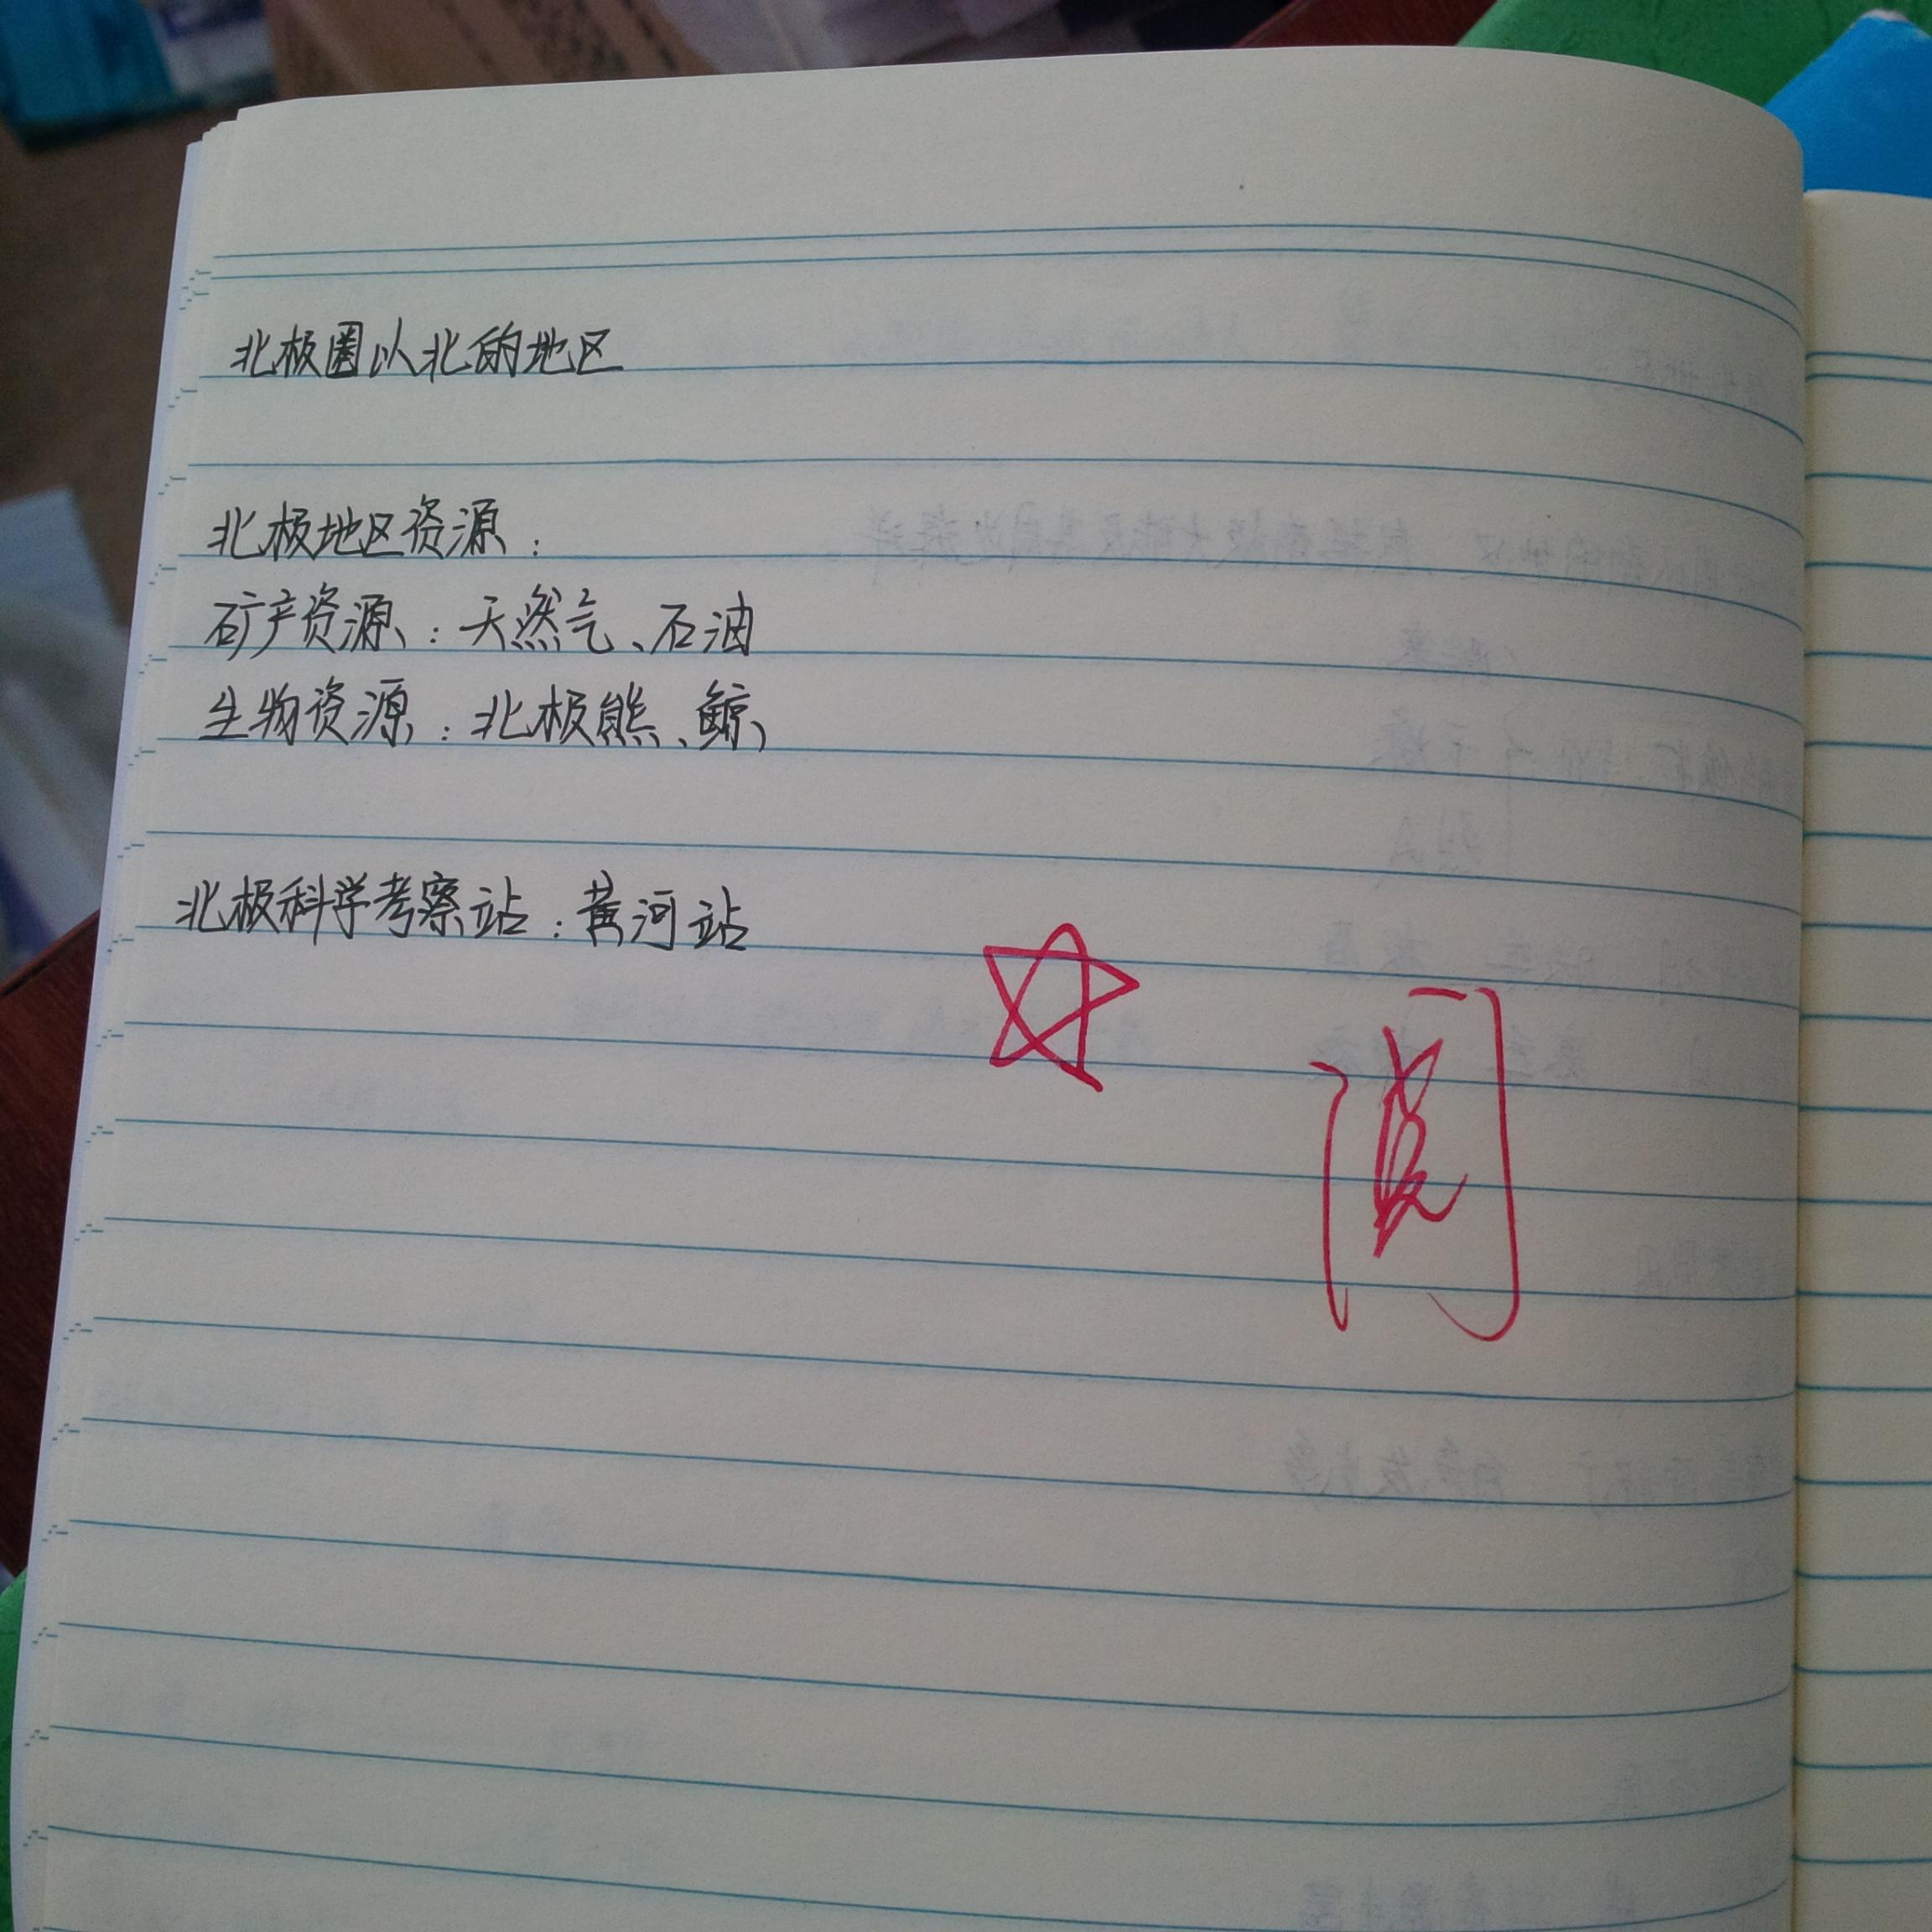 北极圈以北的地区
北极地区资源：
矿产资源：天然气、石油
生物资源：北极熊、鲸
北极科学考察站：黄河站
阅